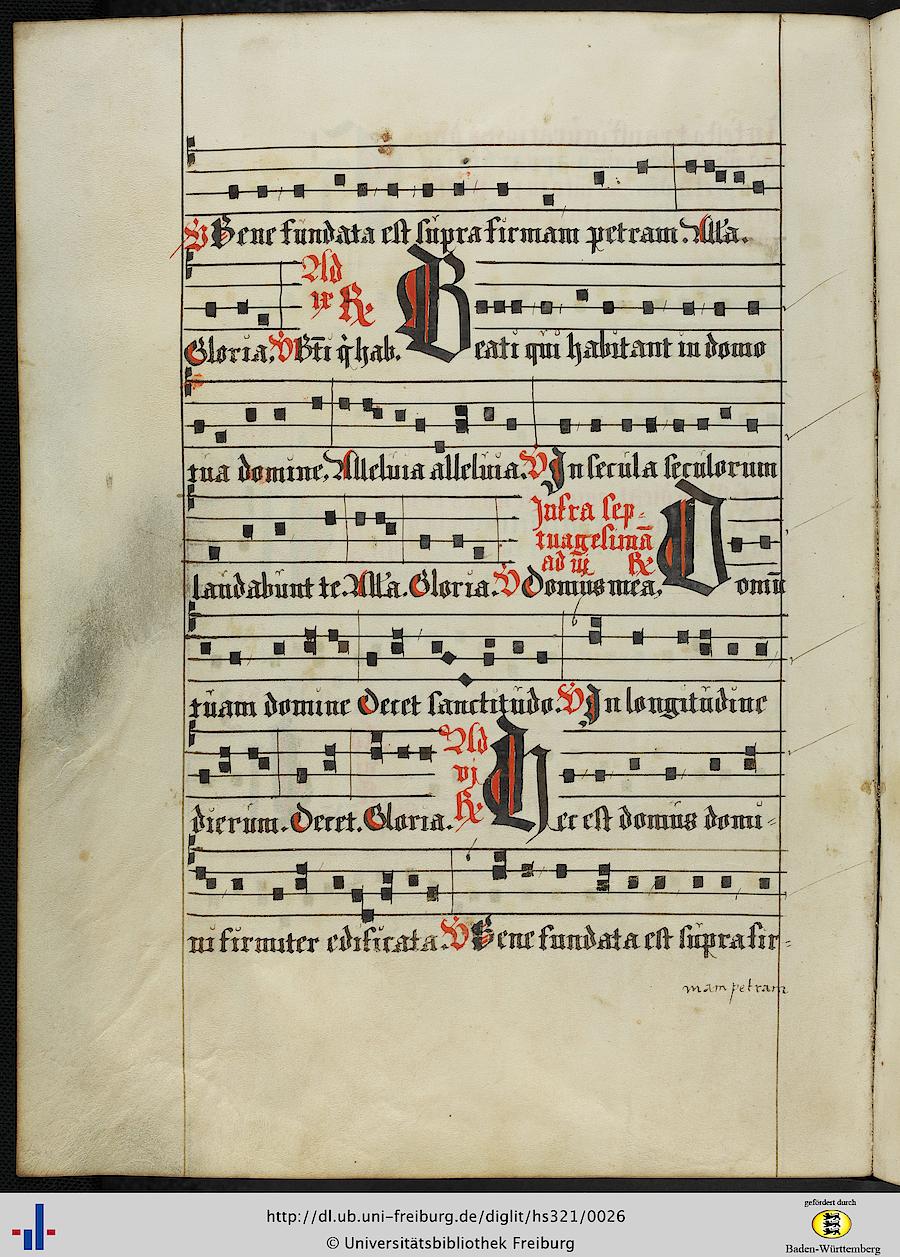 V Bene fundata est supra firmam petram. All'a.
Ad
ix R
Gloria. V Bti q hab. Beati qui habitant in domo
tua domine. Alleluia alleluia. V In secula seculorum
Infra sep-
tuagesimā
ad iij R
laudabunt te. All'a. Gloria. V Domus mea. Domū
tuam domine Decet sanctitudo. V In longitudine
Ad
vj
R
dierum. Decet. Gloria. Hec est domus domi-
ni firmiter edificata. V Bene fundata est supra fir-
mam petram
http://dl.ub.uni-freiburg.de/diglit/hs321/0026
© Universitätsbibliothek Freiburg
gefördert durch
Baden-Württemberg